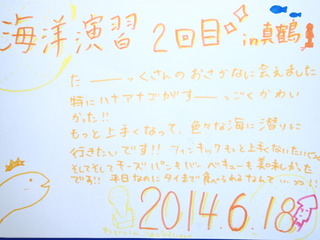 海洋演習 2回目 in 真鶴
たーーーっくさんのおさかなに会えました
特にハナアナゴがすーーっごくかわい
かった!!
もっと上手くなって、色々な海に潜りに
行きたいです!! フィンキックもっと上手くないたいっ
そしてそしてチーズパンもバーベキューも美味しかた
です!! 平日なのにタイまで食べられるなんて...
2014.6.18